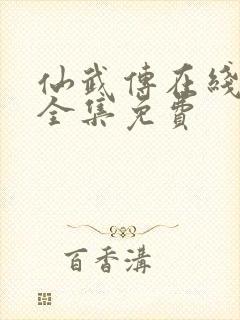 仙武傳在綫
全集免費
百香溝